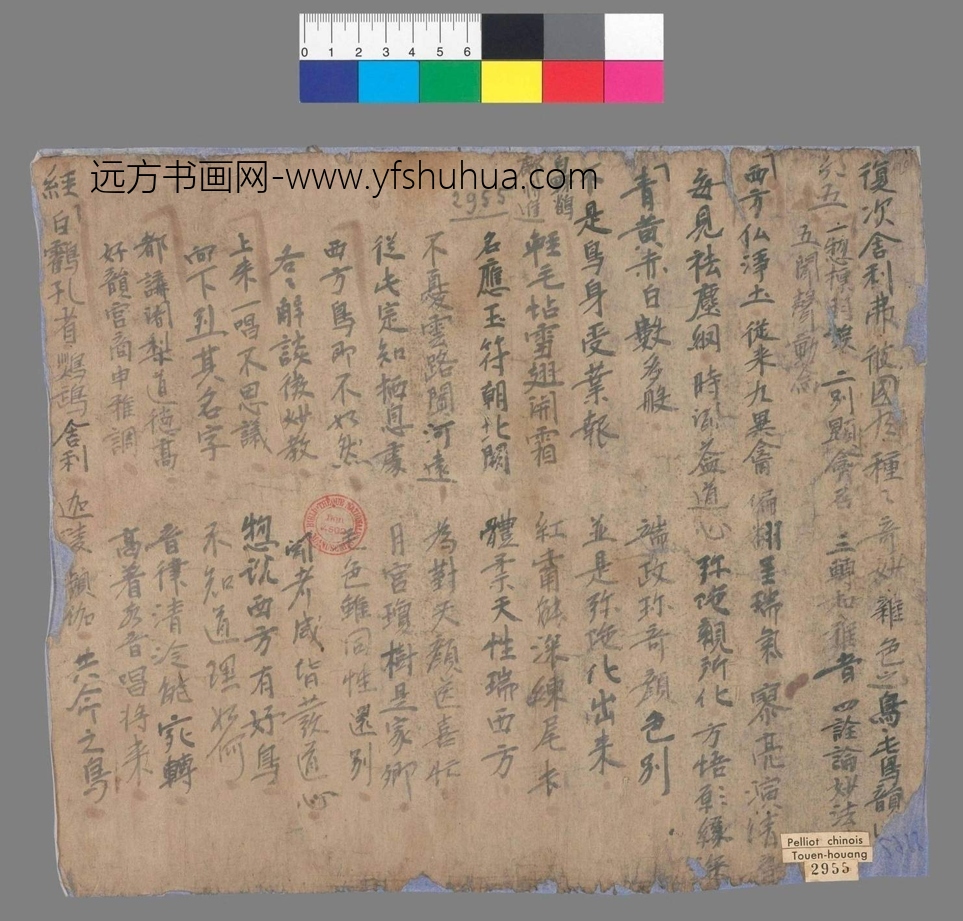 0 1 2 3 4 5 6
远方书画网-www.yfshuhua.com
2955
復次舍利弗彼國有種々奇妙雜色之鳥
五 二惣標 二別顯 名 三轉和雅音 四詮論妙法
五聞聲動念
西方仏淨土 從来九異禽 偏翻呈瑞氣 寥亮演清音
每見祛塵網 時 益道心 弥陁親所化 方悟彰緣深
青黄赤白數多般 端政珎奇顔色別
不是鳥身受業報 並是弥陁化出来
白鶴
輕毛怗雪翅開霜 紅 能深練尾长
名應玉符朝北闕 體柔天性瑞西方
不憂雲路闐河遠 為對天顔送喜忙
從此定知栖息處 月宮瓊樹是家鄉
西方鳥即不如然 毛色雖同性還別
各々解談微妙教 聞者咸皆發道心
上来一唱不思議 惣說西方有好鳥
向下別其名字 不知道理如何
都講闍梨道德高 音律清冷能宛轉
好韻宮商申雅調 高着好音唱将来
經 白鶴孔雀鸚鵡舍利 迦陵頻伽 共命之鳥
Pelliot chinois
Touen-houang
2955